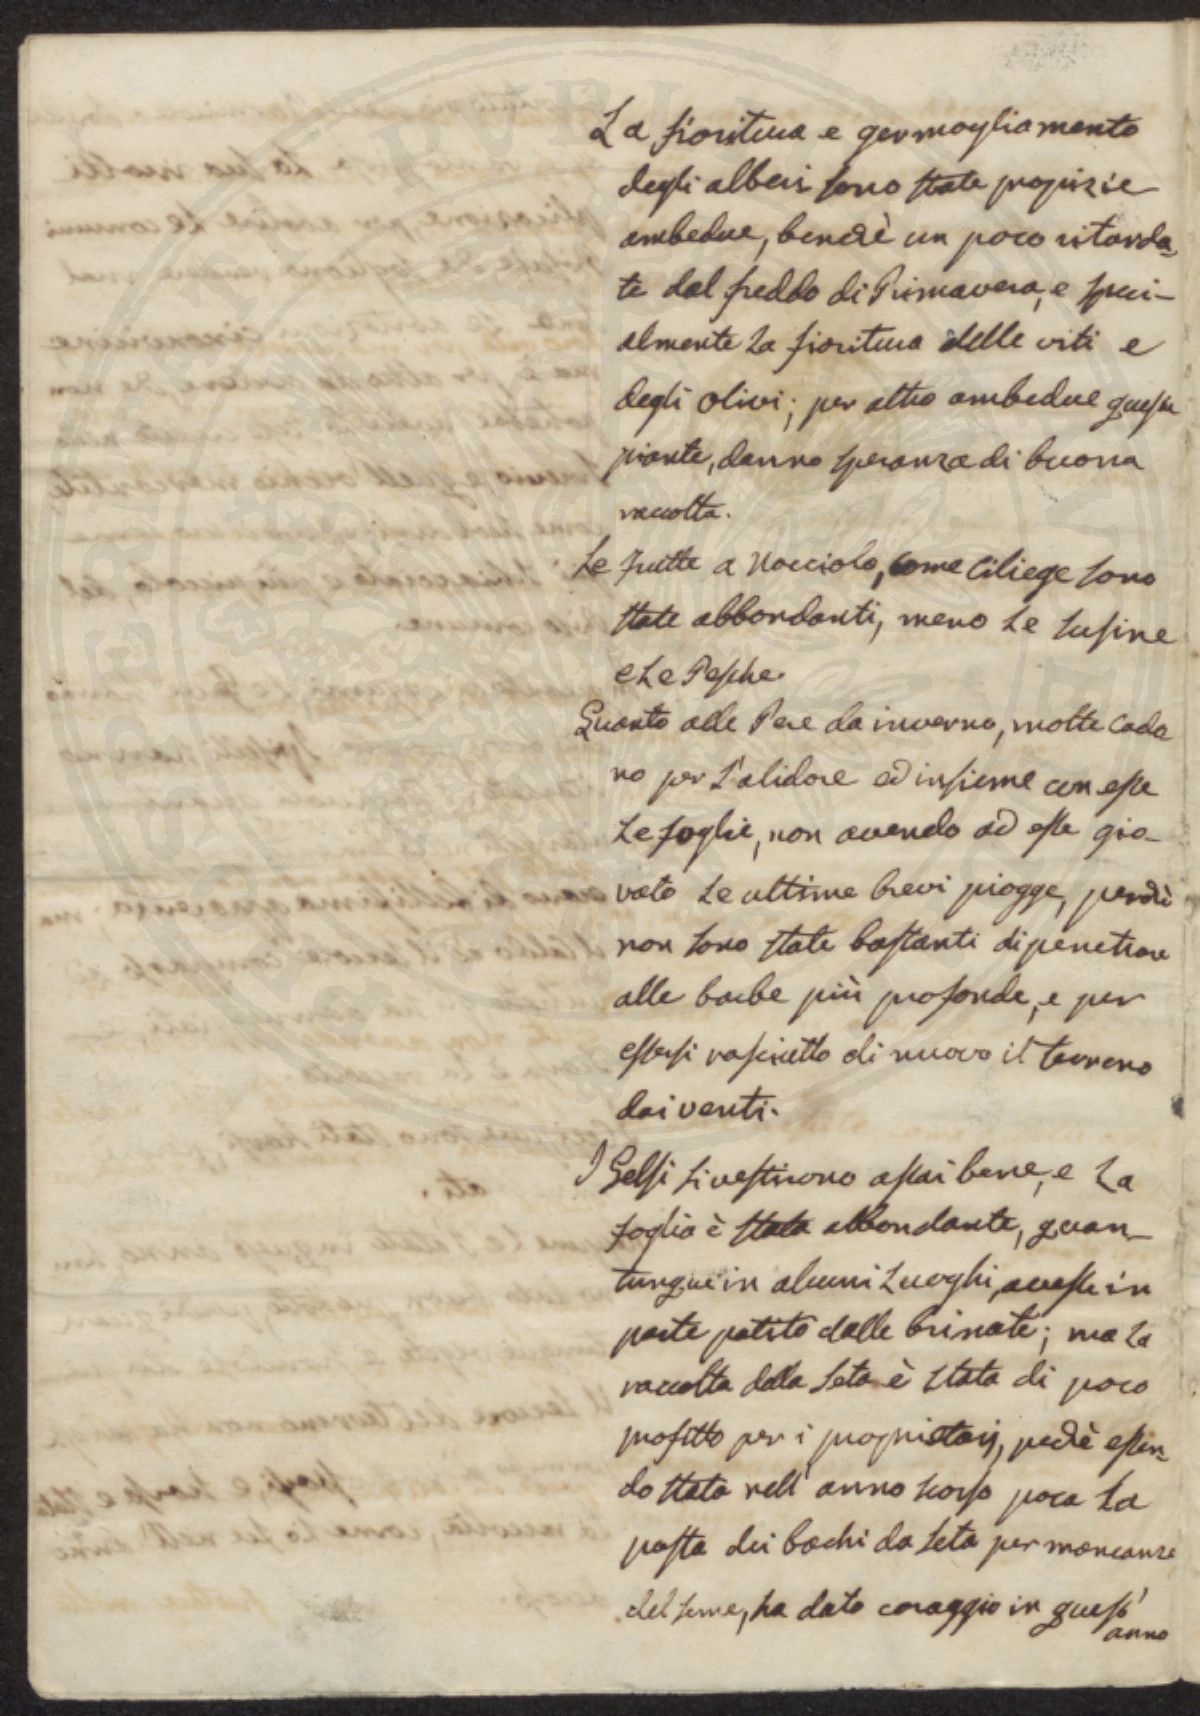 La fioritura e germogliamento
degli alberi sono state propizie
ambedue, benchè un poco ritarda-
te dal freddo di Primavera, e speci-
almente la fioritura delle viti e
degli olivi; per altro ambedue queste
piante, danno speranza di buona
raccolta.
Le frutte a nocciolo, come Ciliege sono
state abbondanti, meno le susine
e le Pesche.
Quanto alle Pere da inverno, molte cado
no per l'alidore ed insieme con esse
le foglie, non avendo ad esse gio-
vato le ultime brevi piogge, perchè
non sono state bastanti di penetrare
alle barbe più profonde, e per
essersi rasciutto di nuovo il terreno
dai venti.
I Gelsi si vestirono assai bene, e la
foglia è stata abbondante, quan-
tunque in alcuni luoghi, avesse in
parte patito dalle brinate; ma la
raccolta della seta è stata di poco
profitto per i proprietarj, perchè essen-
do stata nell'anno scorso poca la
posta dei bachi da seta per mancanza
del seme, ha dato coraggio in quest'
anno